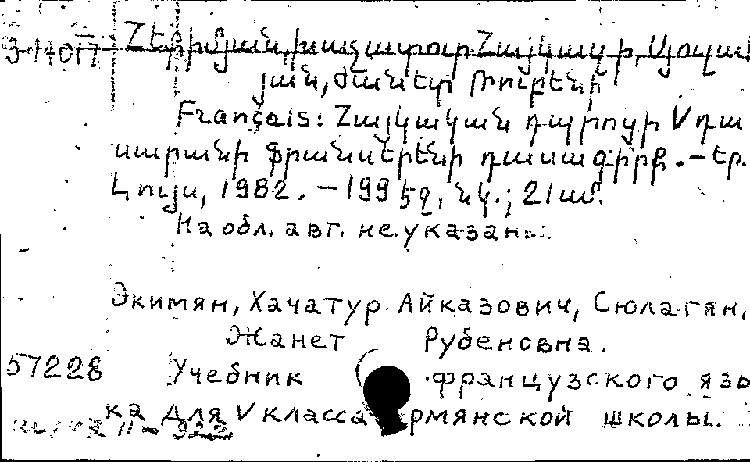 З-14017 Հեքիմյան, Խաչատուր Հայկազի, Սյուլաղ
յան, Ժանետ Ռուբենի
Français: Հայկական դպրոցի V դա
սարանի ֆրանսերենի դասագիրք. – Եր.
Լույս, 1982. – 199 էջ, նկ.; 21 սմ.
На обл. авт. не указаны.
Экимян, Хачатур Айказович, Сюлагян,
Жанет Рубеновна.
57228 Учебник французского язы
ка для V класса армянской школы.